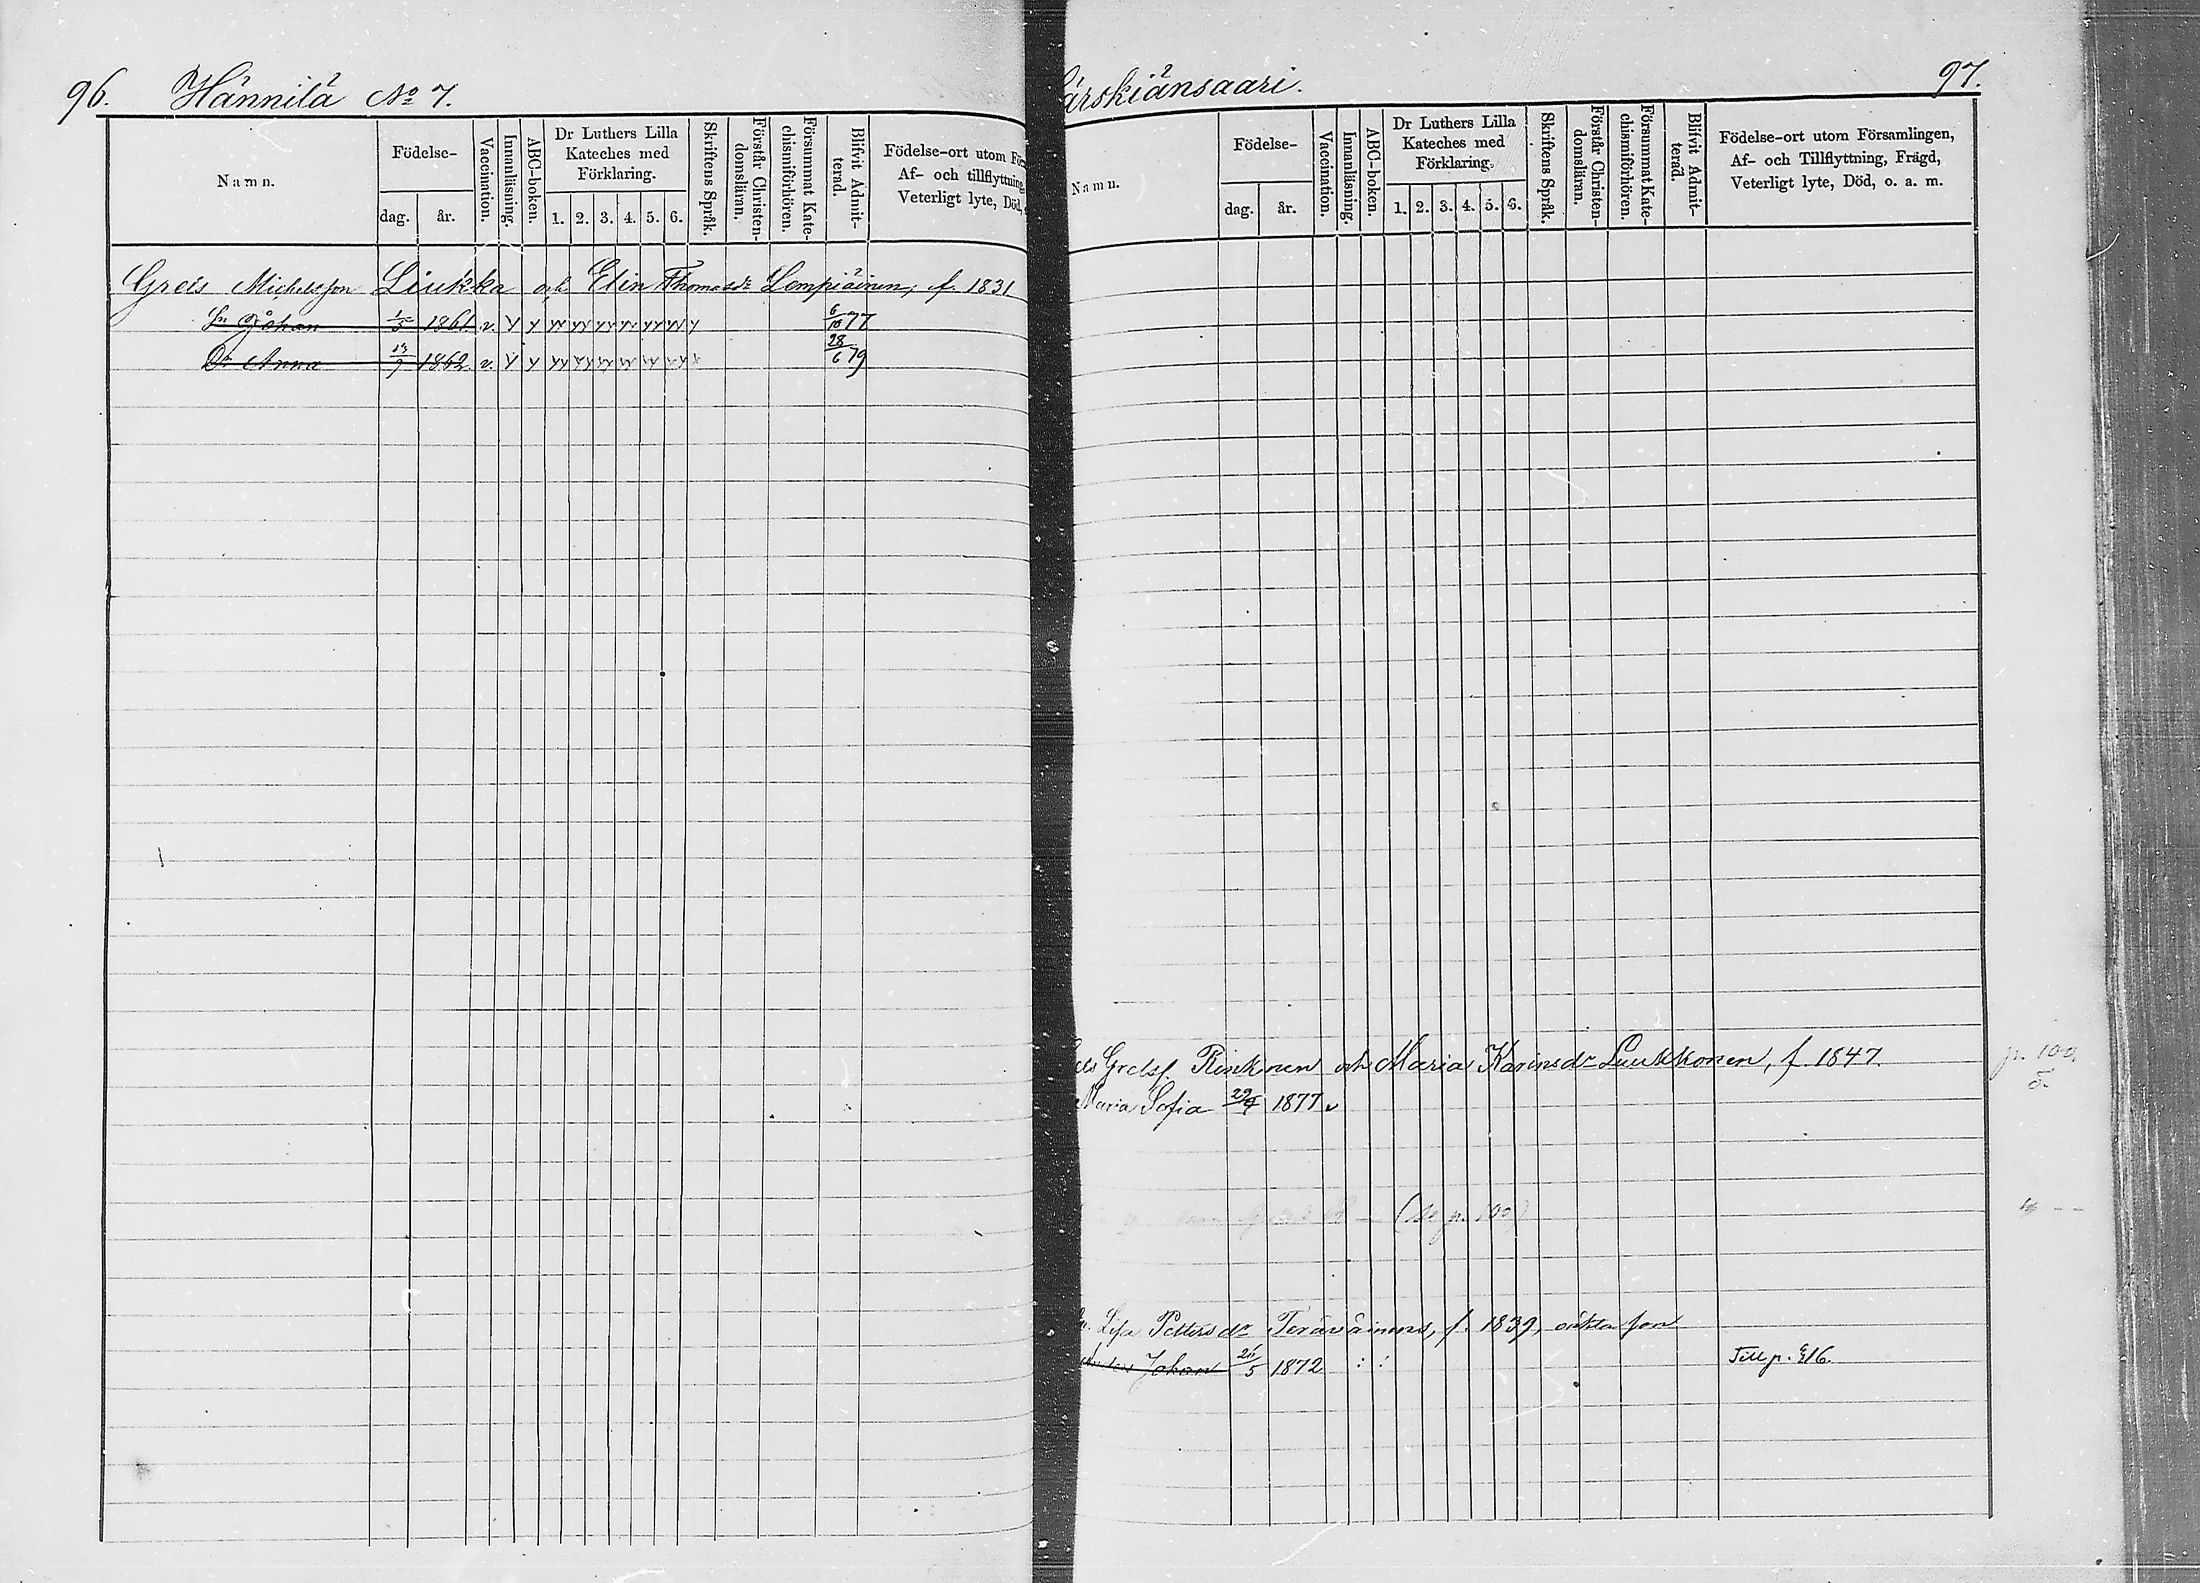 96. Hännilä No 7.
Namn.
Födelse-
dag. år.
Vaccination.
Innanläsning.
ABC-boken.
Dr Luthers Lilla
Kateches med
Förklaring.
1. 2. 3. 4. 5. 6.
Skriftens Språk.
Förstår Christen-
domsläran.
Försummat Kate-
chismiförhören.
Blifvit Admit-
terad.
Födelse-ort utom
Af- och tillflyttning,
Veterligt lyte, Död,
Grels Michelsson Liukka och Elin Thomasdr Lempiäinen, f. 1831
Sn Johan 1/5 1861. v. 6/10 77
Dr Anna 1862. v. 28/6 79
ärskiänsaari. 97.
Namn.
Födelse-
dag. år.
Vaccination.
Innanläsning.
ABC-boken.
Dr Luthers Lilla
Kateches med
Förklaring.
1. 2. 3. 4. 5. 6.
Skriftens Språk.
Förstår Christen-
domsläran.
Försummat Kate-
chismiförhören.
Blifvit Admit-
terad.
Födelse-ort utom Församlingen,
Af- och Tillflyttning, Frägd,
Veterligt lyte, Död, o. a. m.
Grelss. Rinkinen och Maria Karinsdr Luukkonen, f. 1847. p. 100
Maria Sofia 1877 v
(se p. 100)
Lisa Pettersdr Teräväinens, f. 1839, oäkta son
Johan 1872 : : Till p.